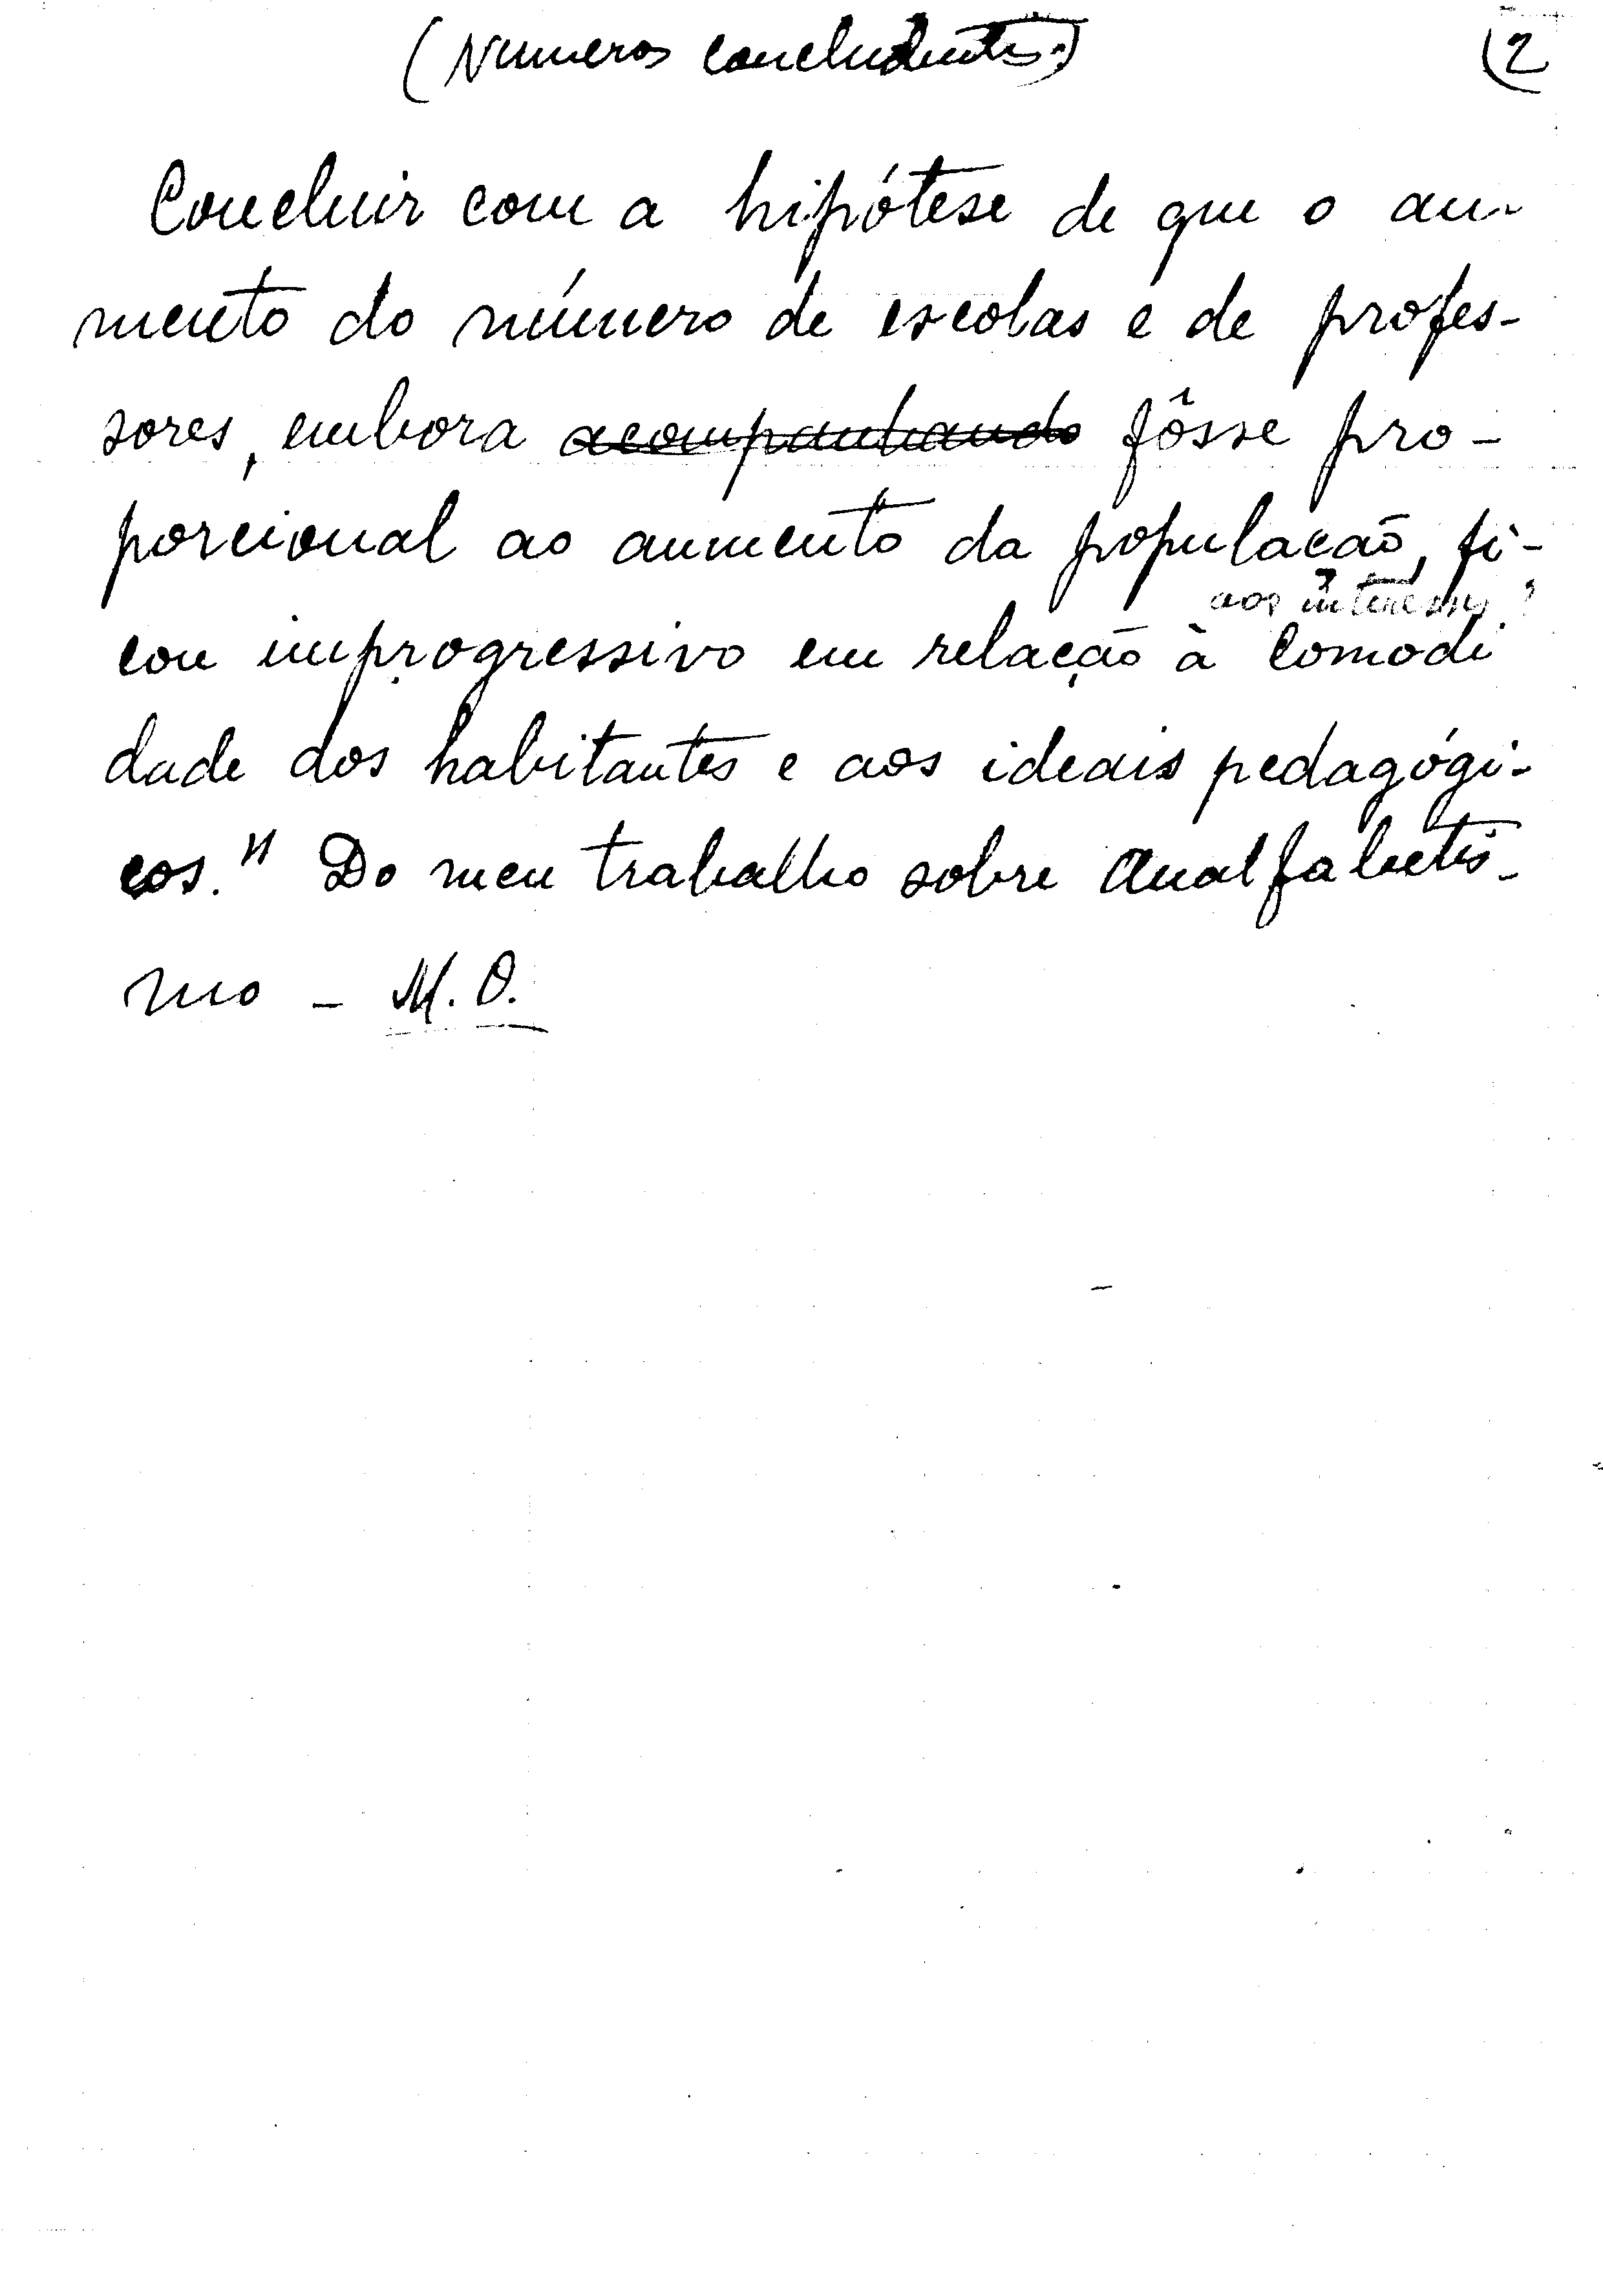 (Numeros concludentes.) (2
Concluir com a hipótese de que o au-
mento do número de escolas e de profes-
sores, embora acompanhando fôsse pro-
porcional ao aumento da população, fi-
aos interesses ?
cou improgressivo em relação à comodi
dade dos habitantes e aos ideais pedagógi-
cos." Do meu trabalho sobre Analfabetis-
mo - M. O.